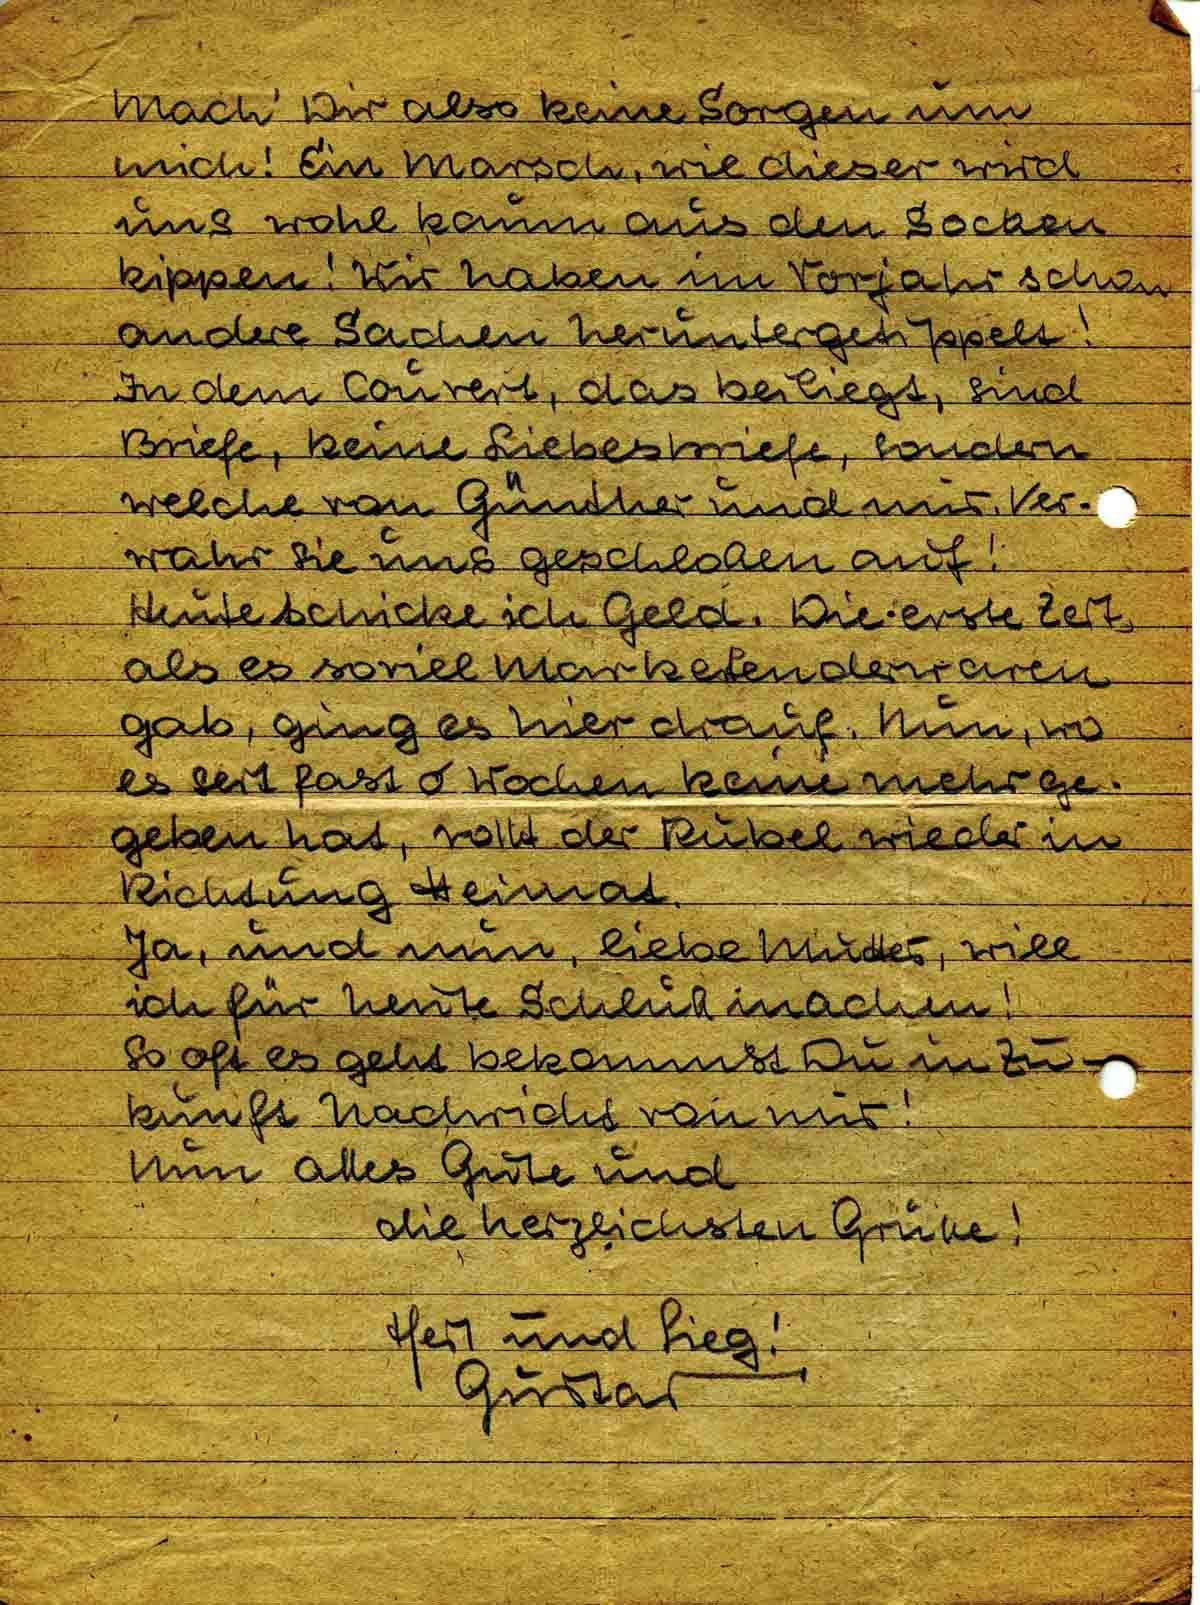 Mach' Dir also keine Sorgen um
mich! Ein Marsch, wie dieser wird
uns wohl kaum aus den Socken
kippen! Wir haben im Vorjahr schon
andere Sachen heruntergetippelt!
In dem Couvert, das beiliegt, sind
Briefe, keine Liebesbriefe, sondern
welche von Günther und mir. Ver-
wahr sie uns geschloßen auf!
Heute schicke ich Geld. Die erste Zeit,
als es soviel Marketenderwaren
gab, ging es hier drauf. Nun, wo
es seit fast 6 Wochen keine mehr ge-
geben hat, rollt der Rubel wieder in
Richtung Heimat.
Ja, und nun, liebe Mutter, will
ich für heute Schluß machen!
So oft es geht bekommst Du in Zu-
kunft Nachricht von mir!
Nun alles Gute und
die herzlichsten Grüße!
Heil und Sieg!
Gustav